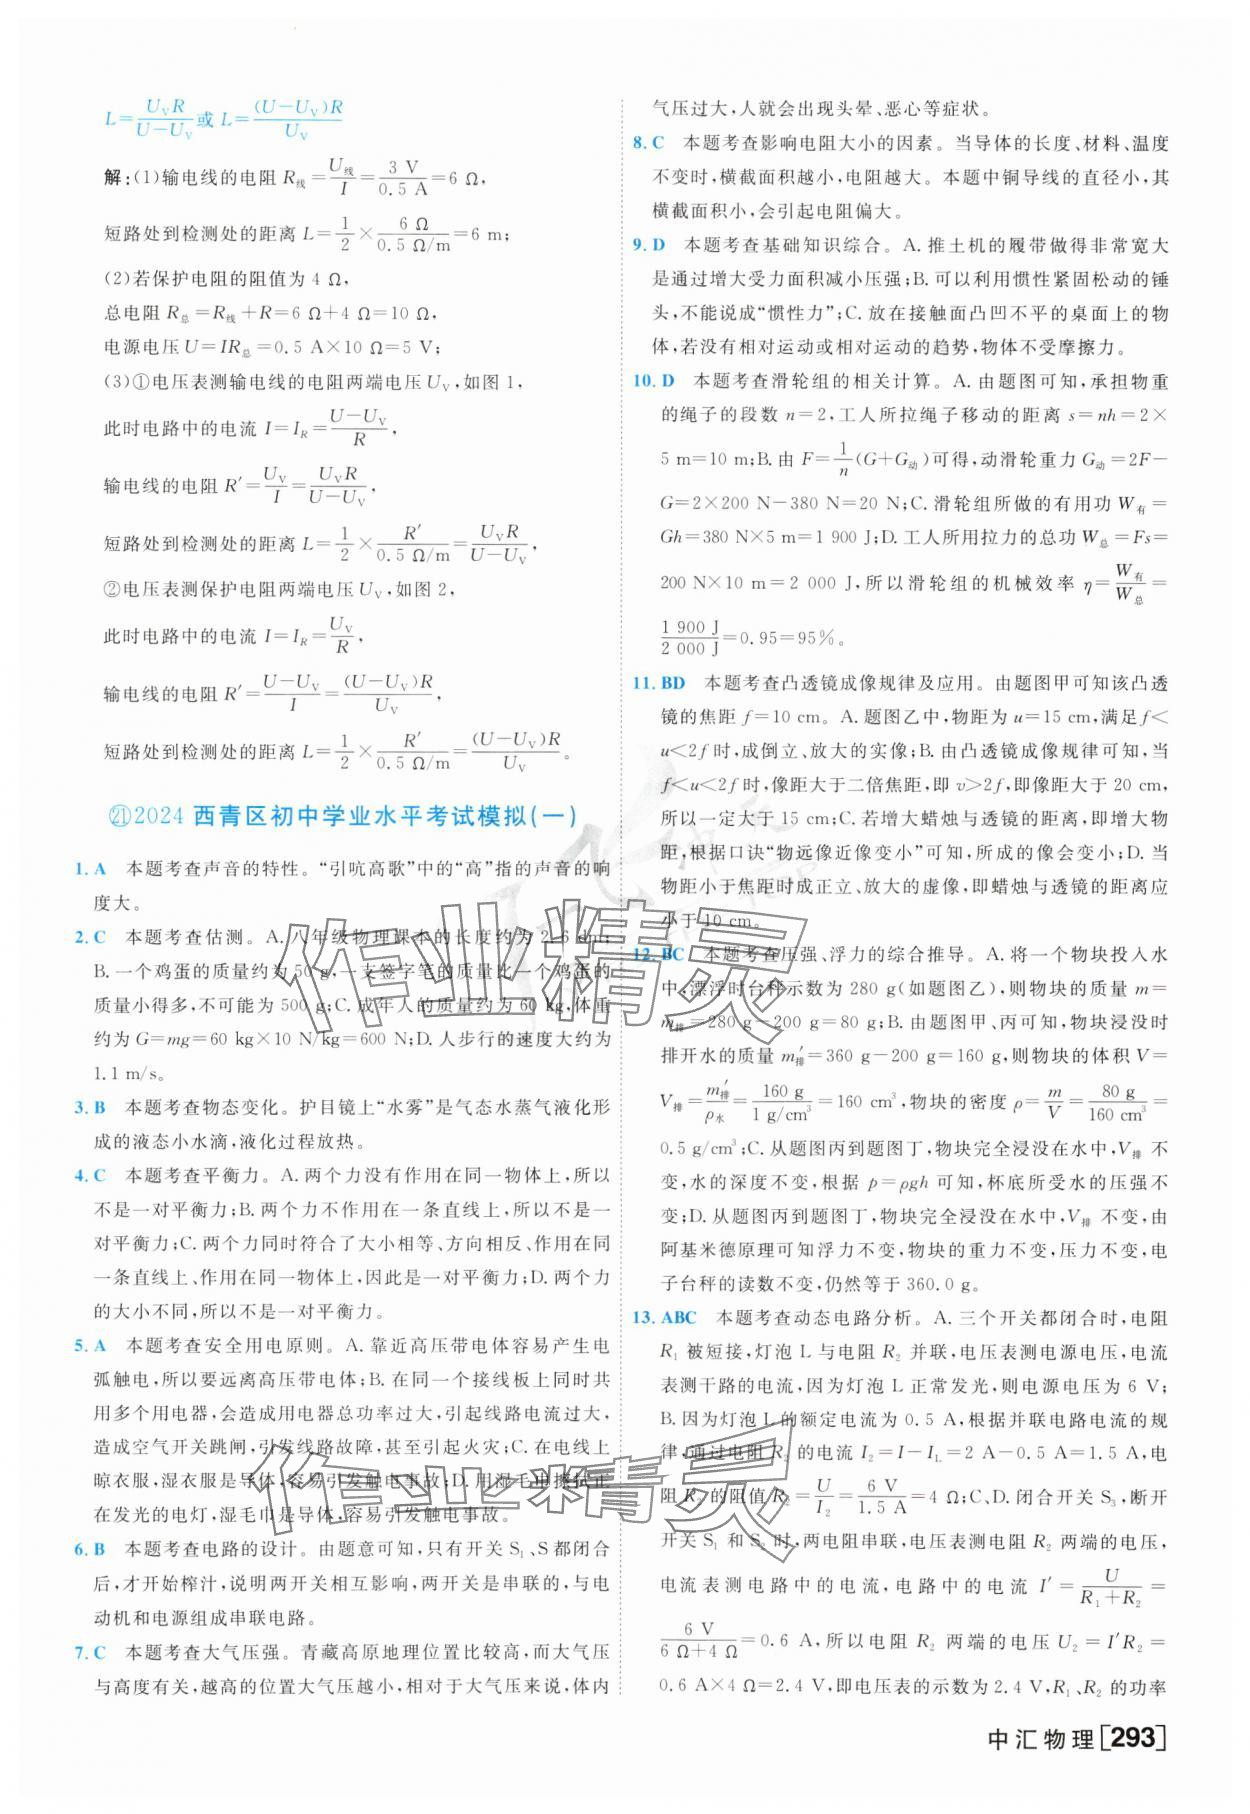 L=U_V R/(U-U_V)或 L=(U-U_V)R/U_V
解:(1)输电线的电阻 R线=U线/I=3 V/0.5 A=6 Ω,
短路处到检测处的距离 L=1/2×6 Ω/(0.5 Ω/m)=6 m;
(2)若保护电阻的阻值为 4 Ω,
总电阻 R总=R线+R=6 Ω+4 Ω=10 Ω,
电源电压 U=IR总=0.5 A×10 Ω=5 V;
(3)①电压表测输电线的电阻两端电压 U_V,如图 1,
此时电路中的电流 I=I_R=(U-U_V)/R,
输电线的电阻 R′=U_V/I=U_V R/(U-U_V),
短路处到检测处的距离 L=1/2×R′/(0.5 Ω/m)=U_V R/(U-U_V),
②电压表测保护电阻两端电压 U_V,如图 2,
此时电路中的电流 I=I_R=U_V/R,
输电线的电阻 R′=(U-U_V)/I=(U-U_V)R/U_V,
短路处到检测处的距离 L=1/2×R′/(0.5 Ω/m)=(U-U_V)R/U_V。
㉑2024 西青区初中学业水平考试模拟(一)
1. A 本题考查声音的特性。“引吭高歌”中的“高”指的声音的响
度大。
2. C 本题考查估测。A. 八年级物理课本的长度约为 2.6 dm;
B. 一个鸡蛋的质量约为 50 g,一支签字笔的质量比一个鸡蛋的
质量小得多,不可能为 500 g;C. 成年人的质量约为 60 kg,体重
约为 G=mg=60 kg×10 N/kg=600 N;D. 人步行的速度大约为
1.1 m/s。
3. B 本题考查物态变化。护目镜上“水雾”是气态水蒸气液化形
成的液态小水滴,液化过程放热。
4. C 本题考查平衡力。A. 两个力没有作用在同一物体上,所以
不是一对平衡力;B. 两个力不作用在一条直线上,所以不是一
对平衡力;C. 两个力同时符合了大小相等、方向相反、作用在同
一条直线上、同一物体上,因此是一对平衡力;D. 两个力
的大小不同,所以不是一对平衡力。
5. A 本题考查安全用电原则。A. 靠近高压带电体容易产生电
弧触电,所以要远离高压带电体;B. 在同一个接线板上同时共
用多个用电器,会造成用电器总功率过大,引起线路电流过大,
造成空气开关跳闸,引发线路故障,甚至引起火灾;C. 在电线上
晾衣服,湿衣服是导体,容易引发触电事故;D. 用湿毛巾擦拭正
在发光的电灯,湿毛巾是导体,容易引发触电事故。
6. B 本题考查电路的设计。由题意可知,只有开关 S₁、S 都闭合
后,才开始榨汁,说明两开关相互影响,两开关是串联的,与电
动机和电源组成串联电路。
7. C 本题考查大气压强。青藏高原地理位置比较高,而大气压
与高度有关,越高的位置大气压越小,相对于大气压来说,体内
气压过大,人就会出现头晕、恶心等症状。
8. C 本题考查影响电阻大小的因素。当导体的长度、材料、温度
不变时,横截面积越小,电阻越大。本题中铜导线的直径小,其
横截面积小,会引起电阻偏大。
9. D 本题考查基础知识综合。A. 推土机的履带做得非常宽大
是通过增大受力面积减小压强;B. 可以利用惯性紧固松动的锤
头,不能说成“惯性力”;C. 放在接触面凸凹不平的桌面上的物
体,若没有相对运动或相对运动的趋势,物体不受摩擦力。
10. D 本题考查滑轮组的相关计算。A. 由题图可知,承担物重
的绳子的段数 n=2,工人所拉绳子移动的距离 s=nh=2×
5 m=10 m;B. 由 F=1/n(G+G动)可得,动滑轮重力 G动=2F-
G=2×200 N-380 N=20 N;C. 滑轮组所做的有用功 W有=
Gh=380 N×5 m=1 900 J;D. 工人所用拉力的总功 W总=Fs=
200 N×10 m=2 000 J,所以滑轮组的机械效率 η=W有/W总=
1 900 J/2 000 J=0.95=95%。
11. BD 本题考查凸透镜成像规律及应用。由题图甲可知该凸透
镜的焦距 f=10 cm。A. 题图乙中,物距为 u=15 cm,满足 f<
u<2f 时,成倒立、放大的实像;B. 由凸透镜成像规律可知,当
f<u<2f 时,像距大于二倍焦距,即 v>2f,即像距大于 20 cm,
所以一定大于 15 cm;C. 若增大蜡烛与透镜的距离,即增大物
距,根据口诀“物远像近像变小”可知,所成的像会变小;D. 当
物距小于焦距时成正立、放大的虚像,即蜡烛与透镜的距离应
小于 10 cm。
12. BC 本题考查压强、浮力的综合推导。A. 将一个物块投入水
中,漂浮时台秤示数为 280 g(如题图乙),则物块的质量 m=
m排=280 g-200 g=80 g;B. 由题图甲、丙可知,物块浸没时
排开水的质量 m′排=360 g-200 g=160 g,则物块的体积 V=
V排=m′排/ρ水=160 g/(1 g/cm³)=160 cm³,物块的密度 ρ=m/V=80 g/160 cm³=
0.5 g/cm³;C. 从题图丙到题图丁,物块完全浸没在水中,V排 不
变,水的深度不变,根据 p=ρgh 可知,杯底所受水的压强不
变;D. 从题图丙到题图丁,物块完全浸没在水中,V排 不变,由
阿基米德原理可知浮力不变,物块的重力不变,压力不变,电
子台秤的读数不变,仍然等于 360.0 g。
13. ABC 本题考查动态电路分析。A. 三个开关都闭合时,电阻
R₁ 被短接,灯泡 L 与电阻 R₂ 并联,电压表测电源电压,电流
表测干路的电流,因为灯泡 L 正常发光,则电源电压为 6 V;
B. 因为灯泡 L 的额定电流为 0.5 A,根据并联电路电流的规
律,通过电阻 R₂ 的电流 I₂=I-I_L=2 A-0.5 A=1.5 A,电
阻 R₂ 的阻值 R₂=U/I₂=6 V/1.5 A=4 Ω;C、D. 闭合开关 S₃,断开
开关 S₁ 和 S₂ 时,两电阻串联,电压表测电阻 R₂ 两端的电压,
电流表测电路中的电流,电路中的电流 I′=U/(R₁+R₂)=
6 V/(6 Ω+4 Ω)=0.6 A,所以电阻 R₂ 两端的电压 U₂=I′R₂=
0.6 A×4 Ω=2.4 V,即电压表的示数为 2.4 V,R₁、R₂ 的功率
中汇物理[293]
作业精灵
作业精灵